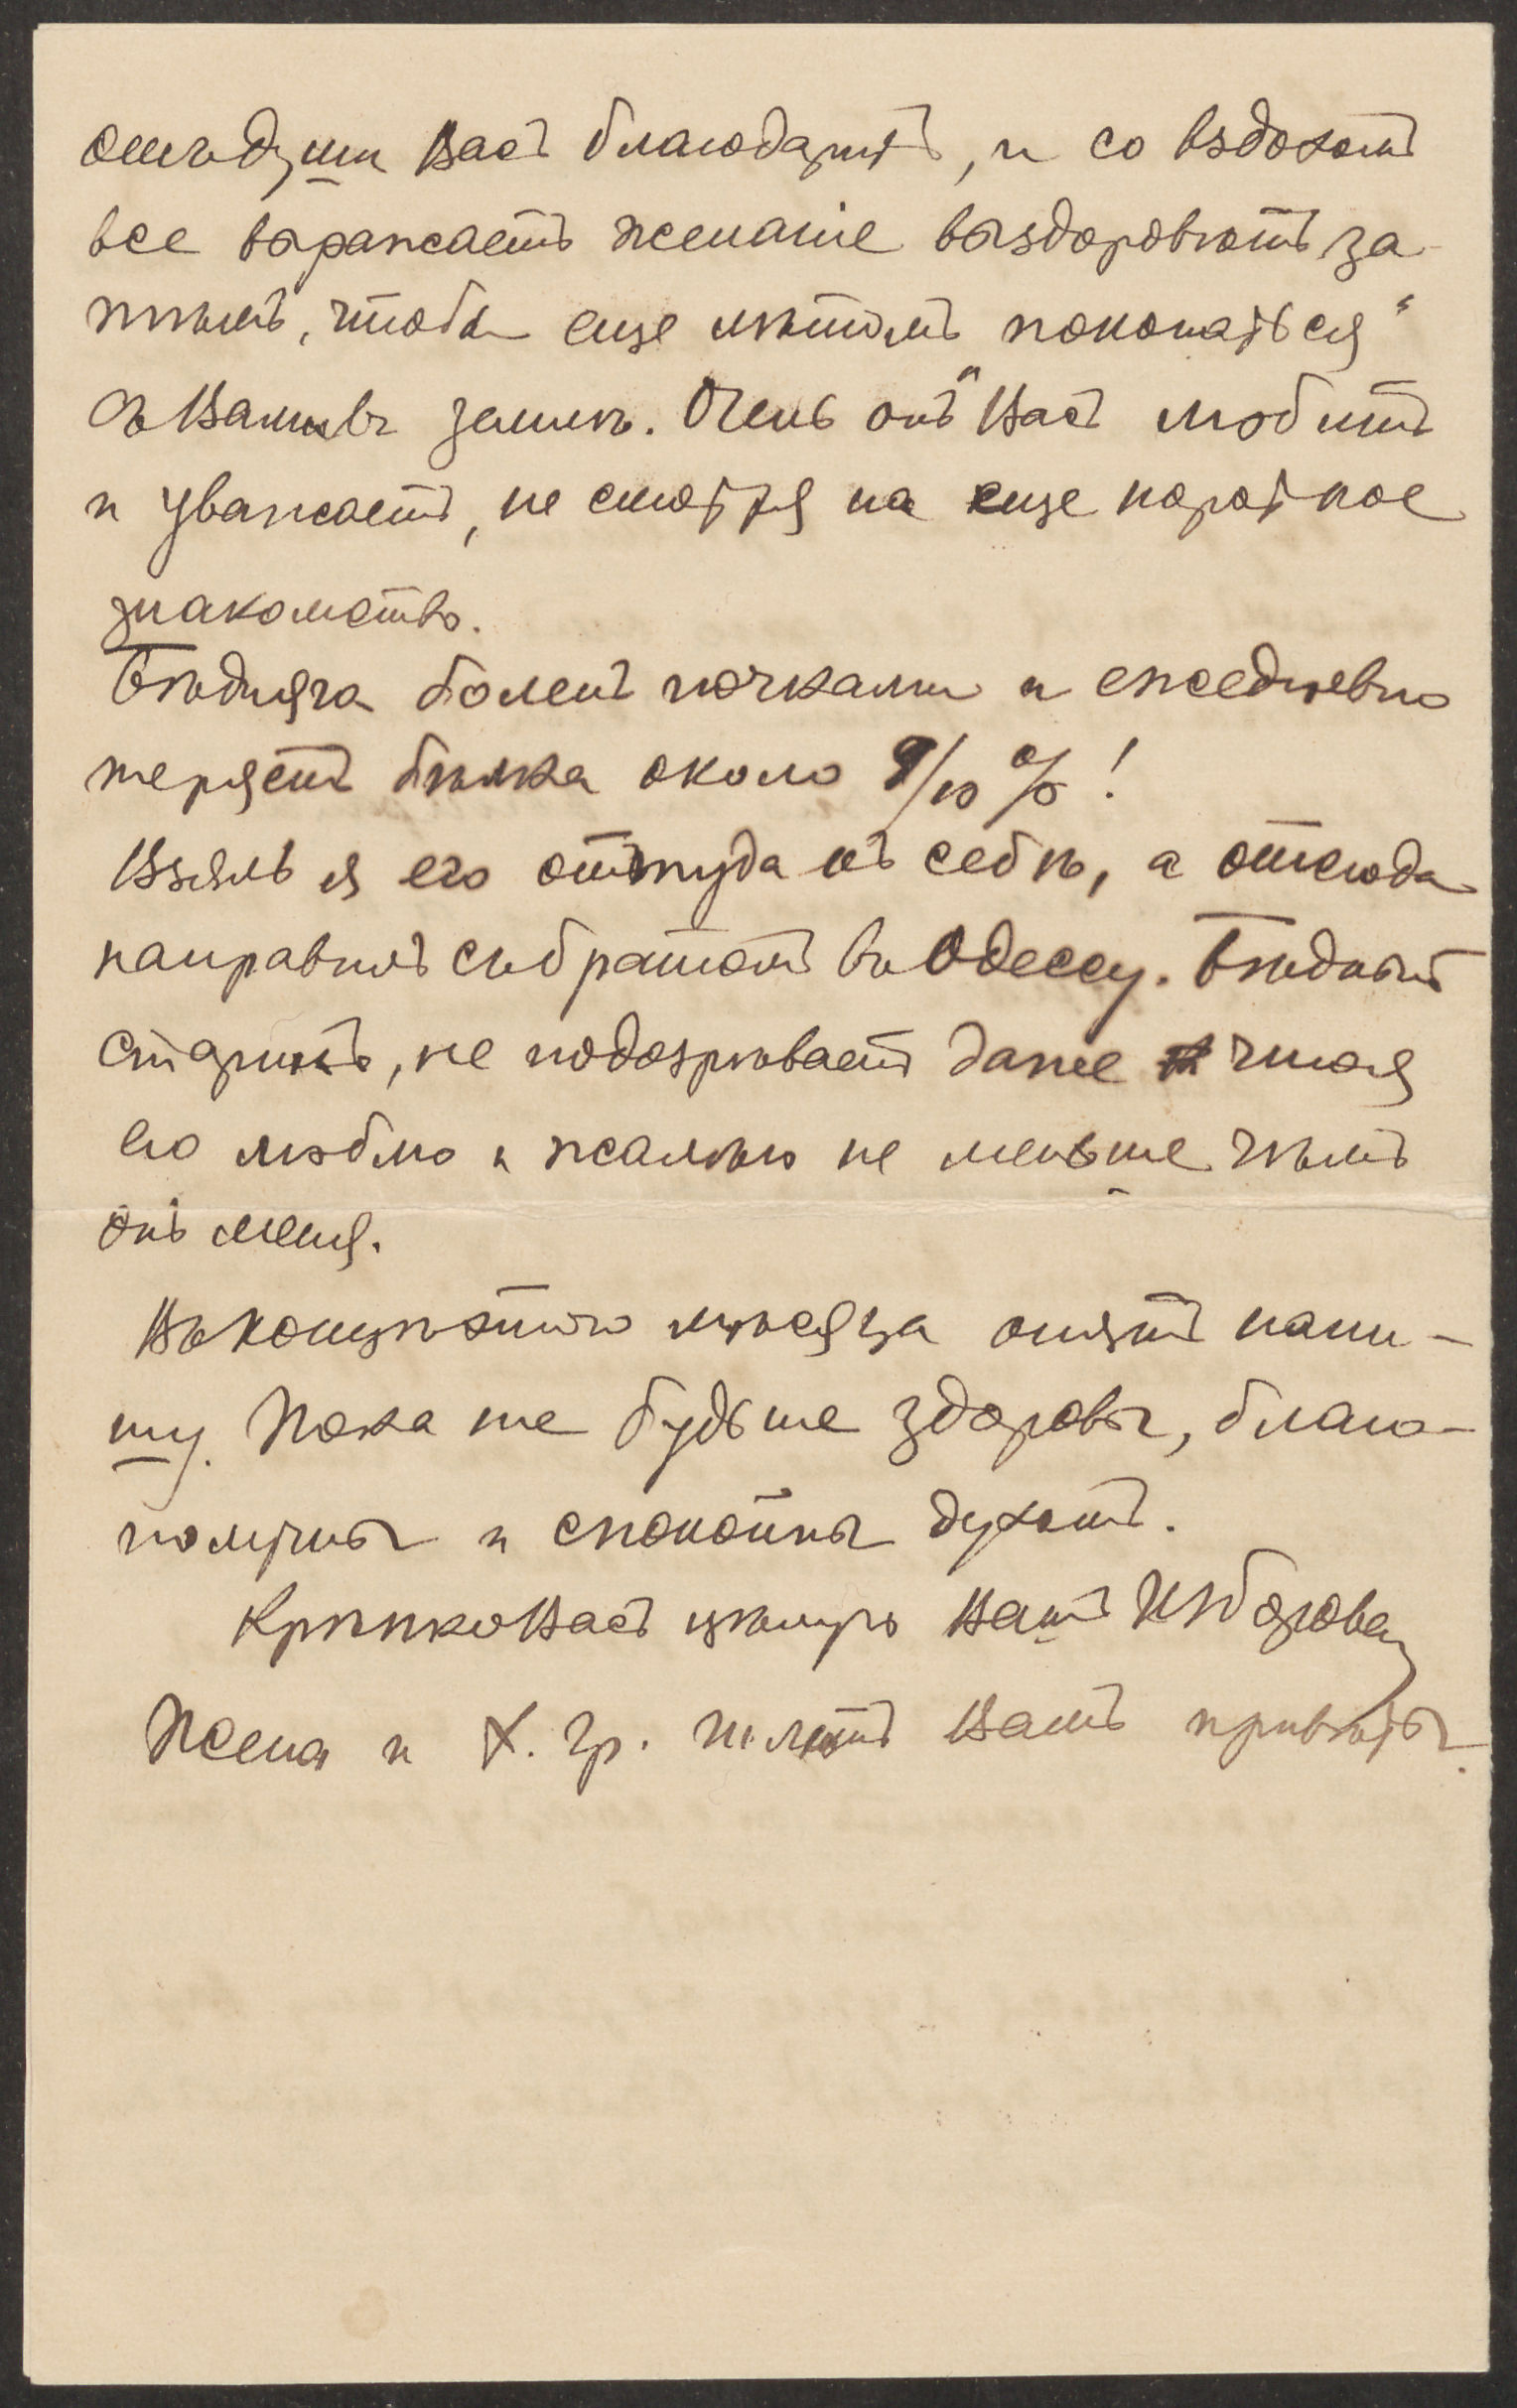 отъ души Васъ благодаритъ, и со вздохомъ
все выражаетъ желаніе выздоровѣть за-
тѣмъ, чтобы еще лѣтомъ „покопаться“
съ Вами въ землѣ. Очень онъ Васъ любитъ
и уважаетъ, не смотря на еще короткое
знакомство.
Бѣдняга боленъ почками и ежедневно
теряетъ бѣлка около 9/10 %!
Взялъ я его оттуда къ себѣ, а отсюда
направилъ съ братомъ въ Одессу. Бѣдный
старикъ, не подозрѣваетъ даже что я
его люблю и жалѣю не меньше чѣмъ
онъ меня.
Въ концѣ этого мѣсяца опять напи-
шу. Пока же будьте здоровы, благо-
получны и спокойны духомъ.
Крѣпко Васъ цѣлую Вашъ
Жена и Х. Гр. шлютъ Вамъ привѣты.